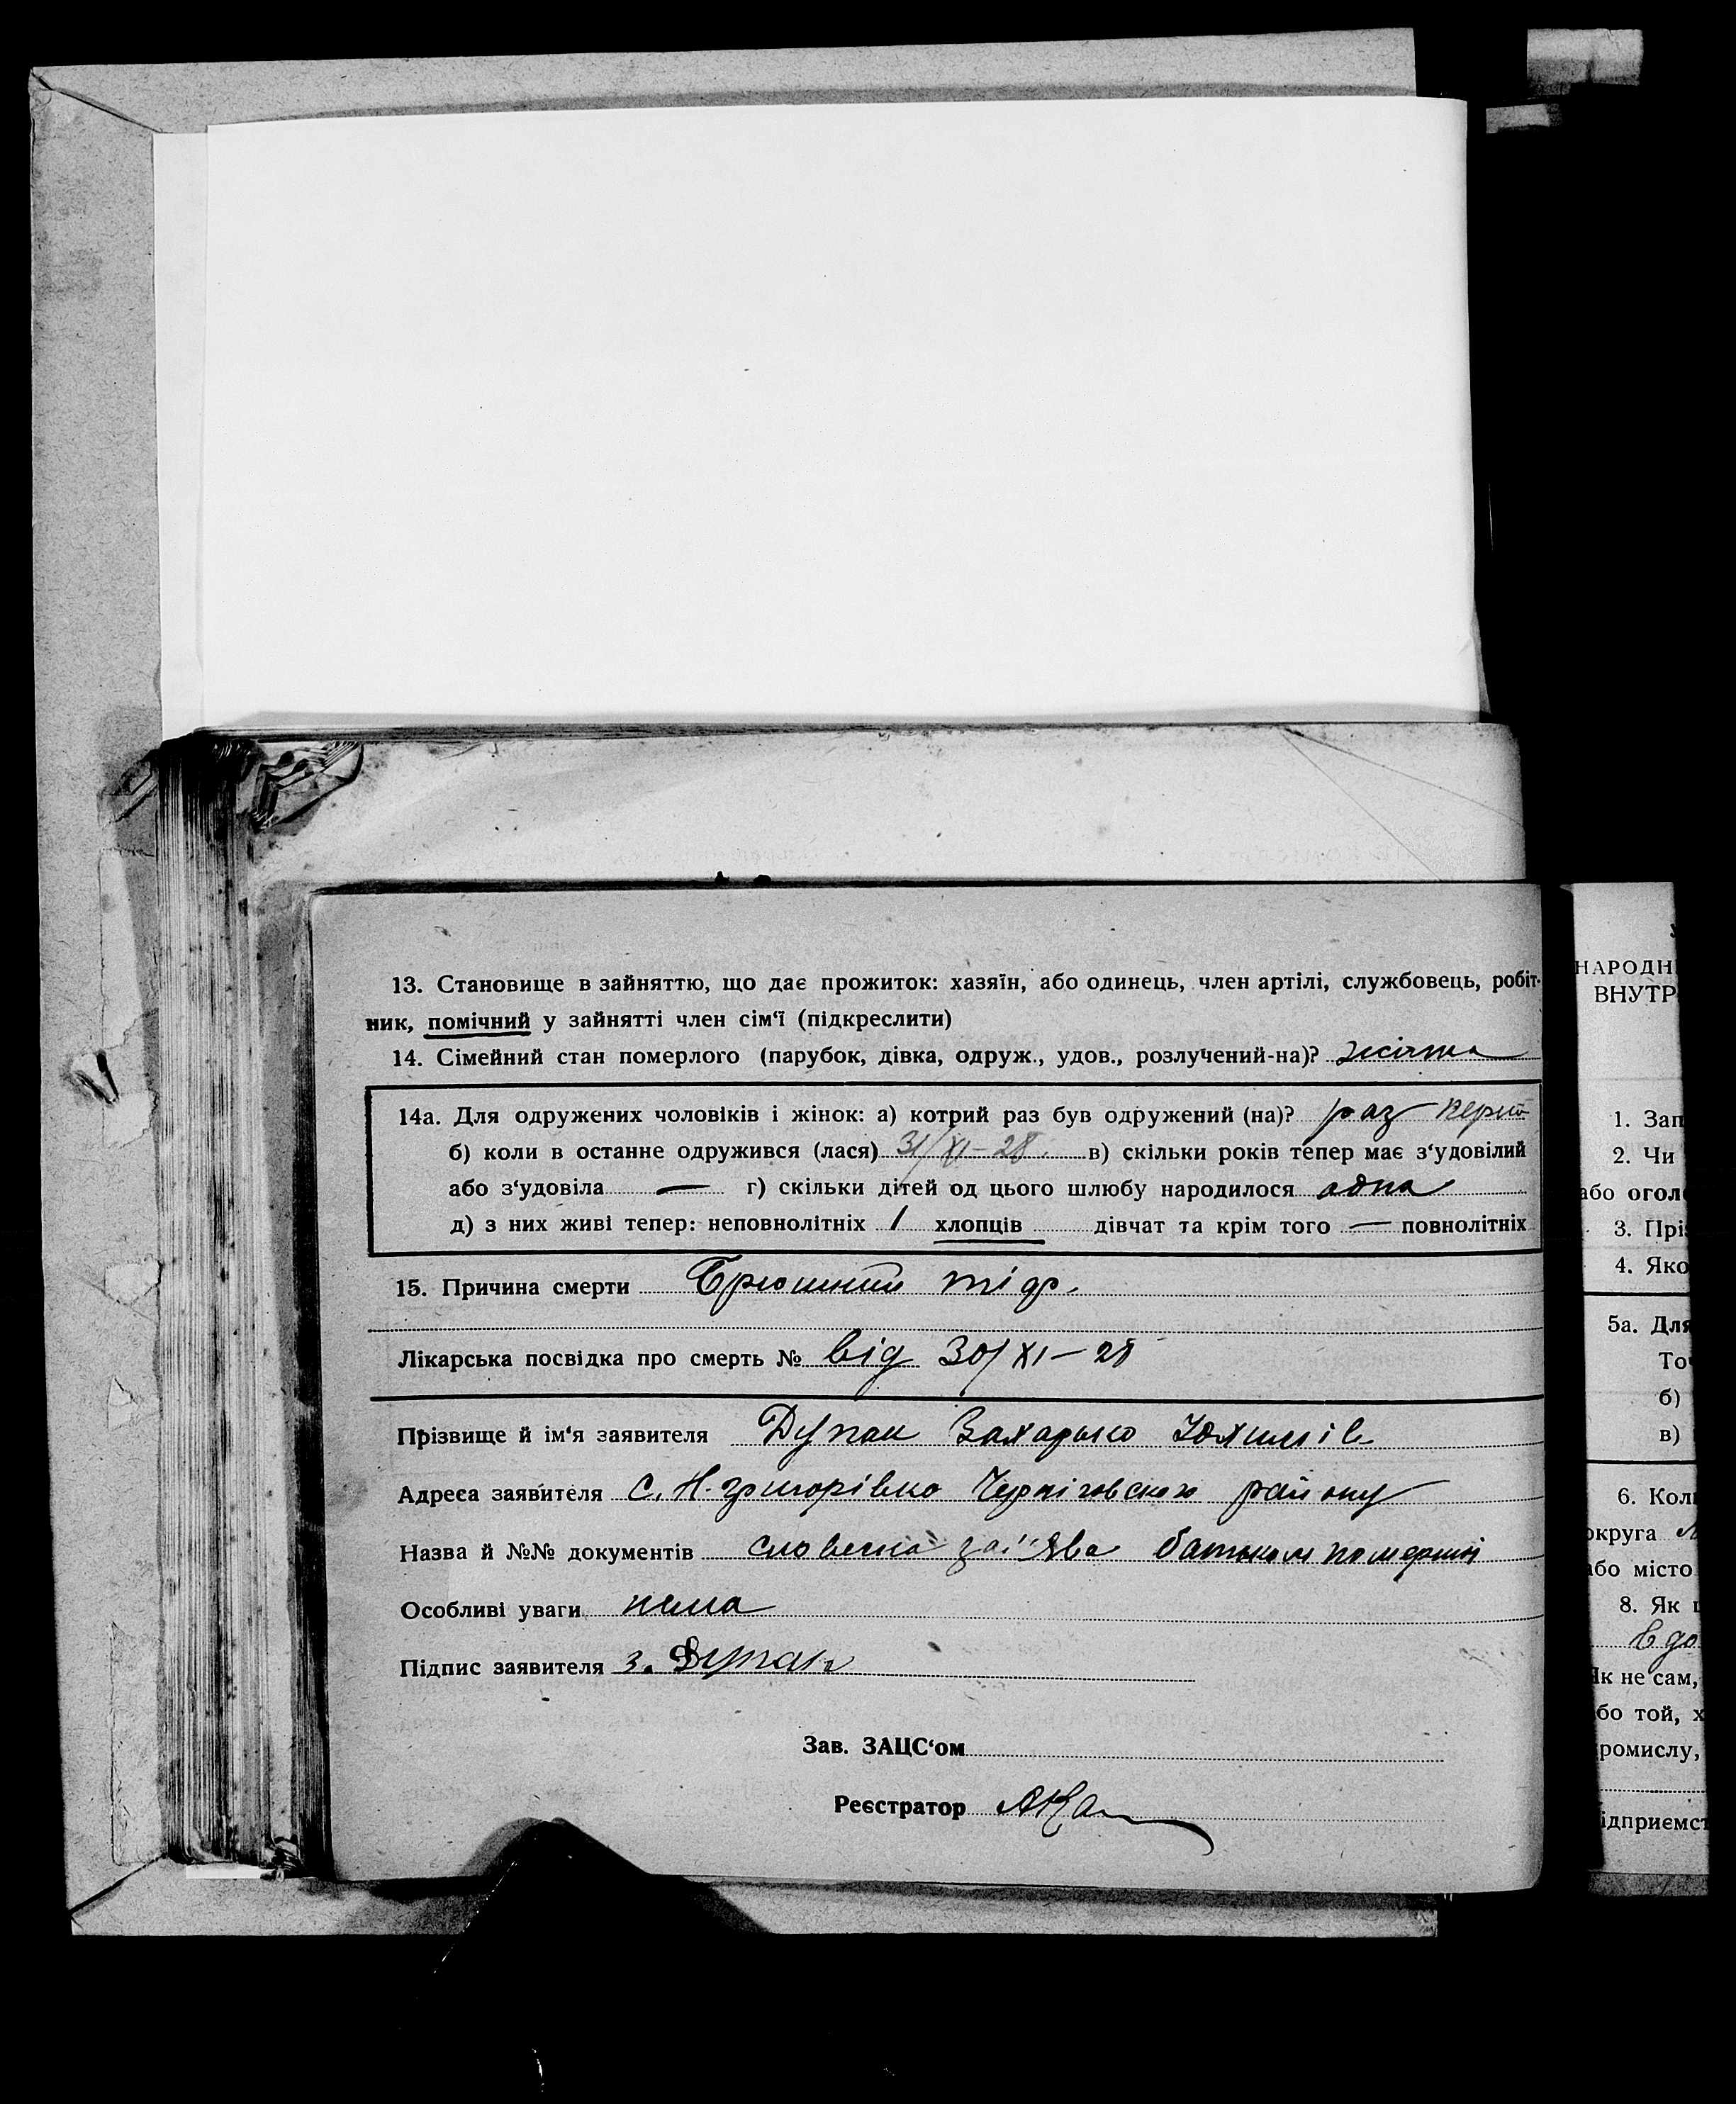 13. Становище в зайняттю, що дає прожиток: хазяїн, або одинець, член артілі, службовець, робіт-
ник, помічний у зайнятті член сім‘ї (підкреслити)
14. Сімейний стан померлого (парубок, дівка, одруж., удов., розлучений-на)?
14а. Для одружених чоловіків і жінок: а) котрий раз був одружений (на)? раз
б) коли в останне одружився (лася) 31/XI-28. в) скільки років тепер має з‘удовілий
або з‘удовіла — г) скільки дітей од цього шлюбу народилося одна
д) з них живі тепер: неповнолітніх 1 хлопців дівчат та крім того — повнолітніх
15. Причина смерти Брюшний тіф.
Лікарська посвідка про смерть № від 30/XI-28
Прізвище й ім‘я заявителя Дупак Захарько Юхимів
Адреса заявителя с. Н.григорівко Чернігівского району
Назва й №№ документів словесна заї"ява батьком помершої
Особливі уваги нема
Підпис заявителя З. Дупак
Зав. ЗАЦС‘ом
Реєстратор
НАРОДН
ВНУТР
1. Зап
2. Чи
або огол
3. Прі
4. Яко
5а. Для
Точ
б)
в)
6. Кол
округа
або місто
8. Як
в до
Як не сам,
бо той, х
ромислу,
ідприємст